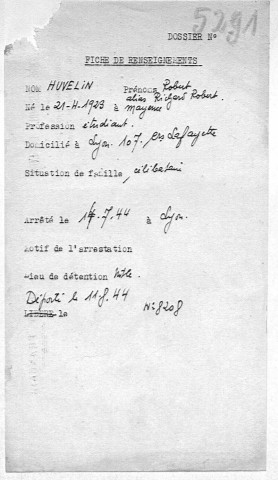 5291
DOSSIER N°
FICHE DE RENSEIGNEMENTS
NOM HUVELIN Prénoms Robert
alias Richard Robert.
Né le 21-4-1923 à Mayenne
Profession étudiant.
Domicilié à Lyon. 107, crs Lafayette
Situation de famille, célibataire
Arrêté le 14.7.44 à Lyon.
Motif de l'arrestation
Lieu de détention Mtle.
Déporté le 11.8.44
LIBERE le N° 8208